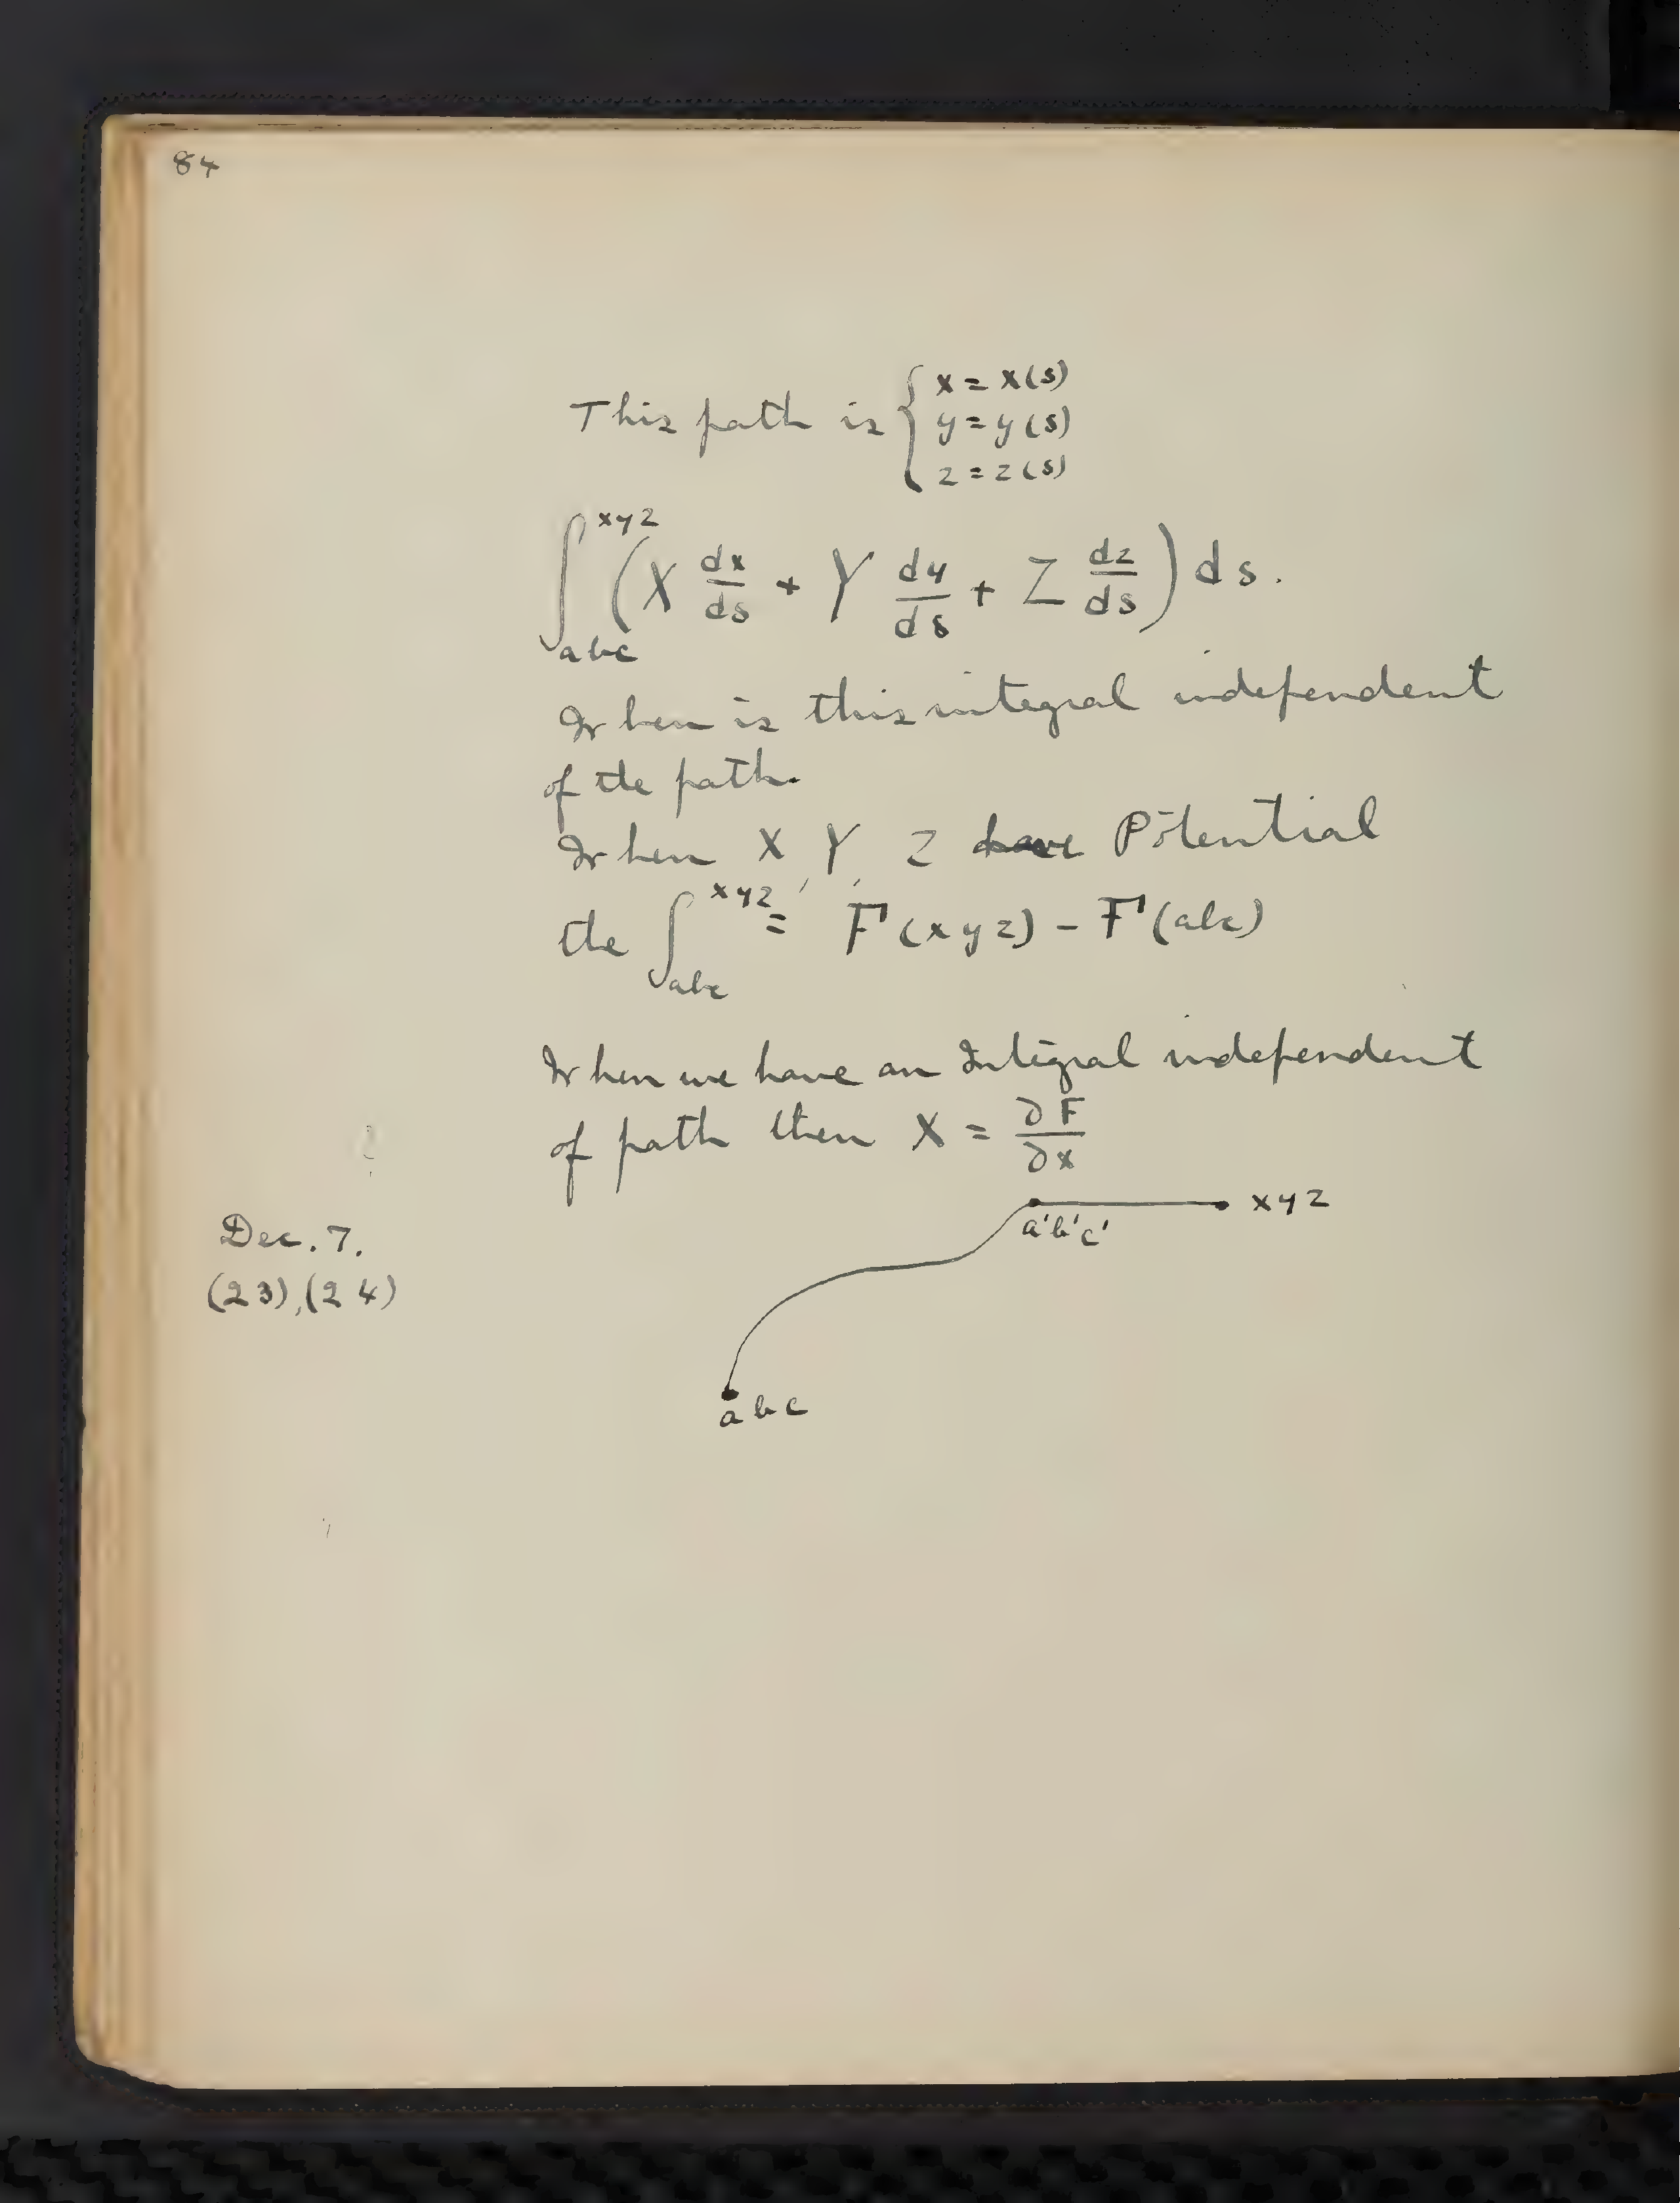 84
This path is { x = x(s)
y = y(s)
z = z(s)
∫_{abc}^{xyz} (X dx/ds + Y dy/ds + Z dz/ds) ds.
When is this integral independent
of the path.
When X, Y, Z have Potential
the ∫_{abc}^{xyz} = F(xyz) - F(abc)
When we have an Integral independent
of path then X = ∂F/∂x
Dec. 7.
(23), (24)
xyz
a'b'c'
abc